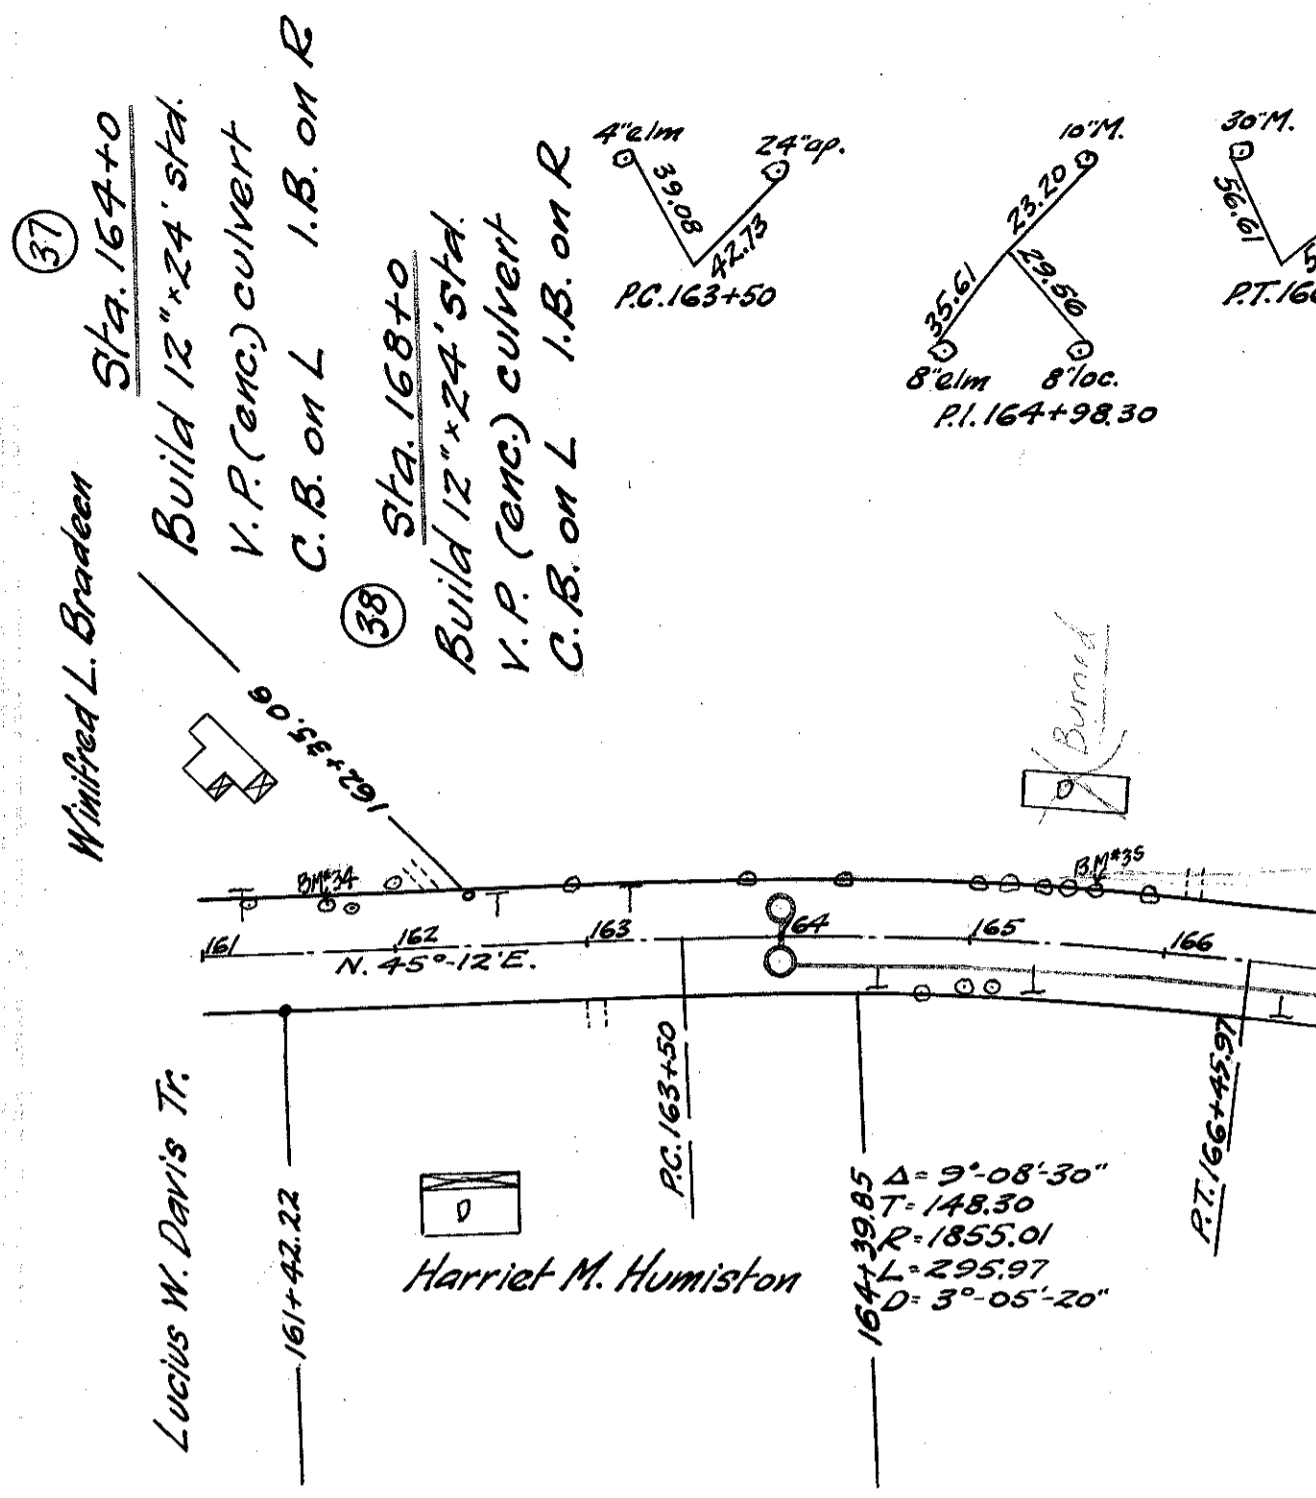 37
Sta. 164+0
Build 12"×24' std.
V.P. (enc.) culvert
C.B. on L I.B. on R
38
Sta. 168+0
Build 12"×24' std.
V.P. (enc.) culvert
C.B. on L I.B. on R
4"elm
24"ap.
39.08
42.73
P.C. 163+50
10"M.
23.20
35.61
29.56
8"elm
8"loc.
P.I. 164+98.30
30"M.
56.61
5
P.T. 166
Winifred L. Bradeen
162+35.06
Burned
BM#34
BM#35
161
162
163
164
165
166
N. 45°-12'E.
Lucius W. Davis Tr.
161+42.22
Harriet M. Humiston
P.C. 163+50
164+39.85
Δ= 9°-08'-30"
T= 148.30
R= 1855.01
L= 295.97
D= 3°-05'-20"
P.T. 166+45.97